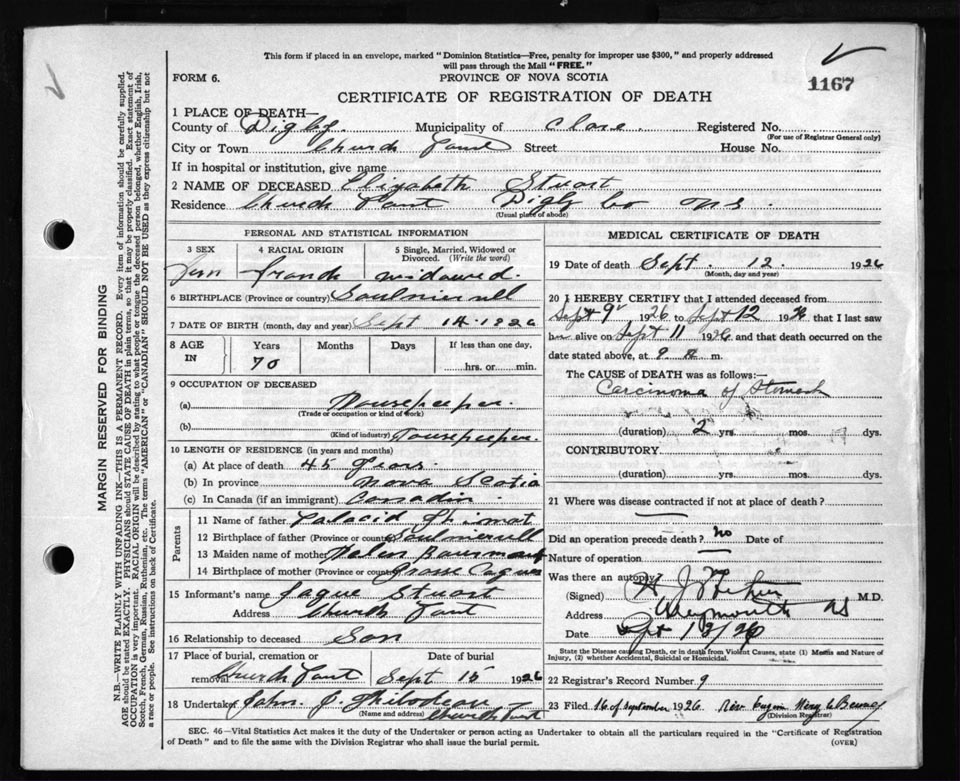 This form if placed in an envelope, marked "Dominion Statistics—Free, penalty for improper use $300," and properly addressed
will pass through the Mail "FREE."
FORM 6.
PROVINCE OF NOVA SCOTIA
1167
CERTIFICATE OF REGISTRATION OF DEATH
1 PLACE OF DEATH—
County of Digby. Municipality of Clare. Registered No.
(For use of Registrar General only)
City or Town Church Point Street House No.
If in hospital or institution, give name
2 NAME OF DECEASED Elizabeth Stuart
Residence Church Point Digby Co NS.
(Usual place of abode)
PERSONAL AND STATISTICAL INFORMATION
3 SEX 4 RACIAL ORIGIN 5 Single, Married, Widowed or Divorced. (Write the word)
Fem french widowed.
6 BIRTHPLACE (Province or country)
7 DATE OF BIRTH (month, day and year) Sept 14-1926
8 AGE IN Years Months Days If less than one day,
70 hrs. or min.
9 OCCUPATION OF DECEASED
(a) Housekeeper.
(Trade or occupation or kind of work)
(b) Housekeeper.
(Kind of industry)
10 LENGTH OF RESIDENCE (in years and months)
(a) At place of death 45 years.
(b) In province Nova Scotia
(c) In Canada (if an immigrant)
Parents
11 Name of father
12 Birthplace of father (Province or country)
13 Maiden name of mother Helen
14 Birthplace of mother (Province or country) Grosse Coques
15 Informant's name Stuart
Address Church Point
16 Relationship to deceased Son
17 Place of burial, cremation or removal Church Point Date of burial Sept 15 1926
18 Undertaker John J Thibodeau
(Name and address) Church Point
MEDICAL CERTIFICATE OF DEATH
19 Date of death Sept. 12. 1926
(Month, day and year)
20 I HEREBY CERTIFY that I attended deceased from
Sept 9 1926 to Sept 12 1926 that I last saw
her alive on Sept 11 1926, and that death occurred on the
date stated above, at 9 a m.
The CAUSE of DEATH was as follows:—
Carcinoma of Stomach
(duration) 2 yrs. mos. dys.
CONTRIBUTORY
(duration) yrs. mos. dys.
21 Where was disease contracted if not at place of death?
Did an operation precede death? no Date of
Nature of operation
Was there an autopsy?
(Signed) M.D.
Address Weymouth NS
Date Sept 12/26
State the Disease causing Death, or in death from Violent Causes, state (1) Means and Nature of
Injury, (2) whether Accidental, Suicidal or Homicidal.
22 Registrar's Record Number 9
23 Filed 16 of September 1926.
(Division Registrar)
SEC. 46—Vital Statistics Act makes it duty of the Undertaker or person acting as Undertaker to obtain all the particulars required in the "Certificate of Registration
of Death" and to file the same with the Division Registrar who shall issue the burial permit.
(OVER)
MARGIN RESERVED FOR BINDING
N.B.—WRITE PLAINLY WITH UNFADING INK—THIS IS A PERMANENT RECORD. Every item of information should be carefully supplied.
AGE should be stated EXACTLY. PHYSICIANS should STATE CAUSE OF DEATH in plain terms, so that it may be properly classified. Exact statement of
OCCUPATION is very important. RACIAL ORIGIN will be described by stating to what people or tongue the deceased person belonged, whether English, Irish,
Scotch, French, German, Russian, Ruthenian, etc. The terms "AMERICAN" or "CANADIAN" SHOULD NOT BE USED as they express citizenship but not
a race or people. See instructions on back of Certificate.